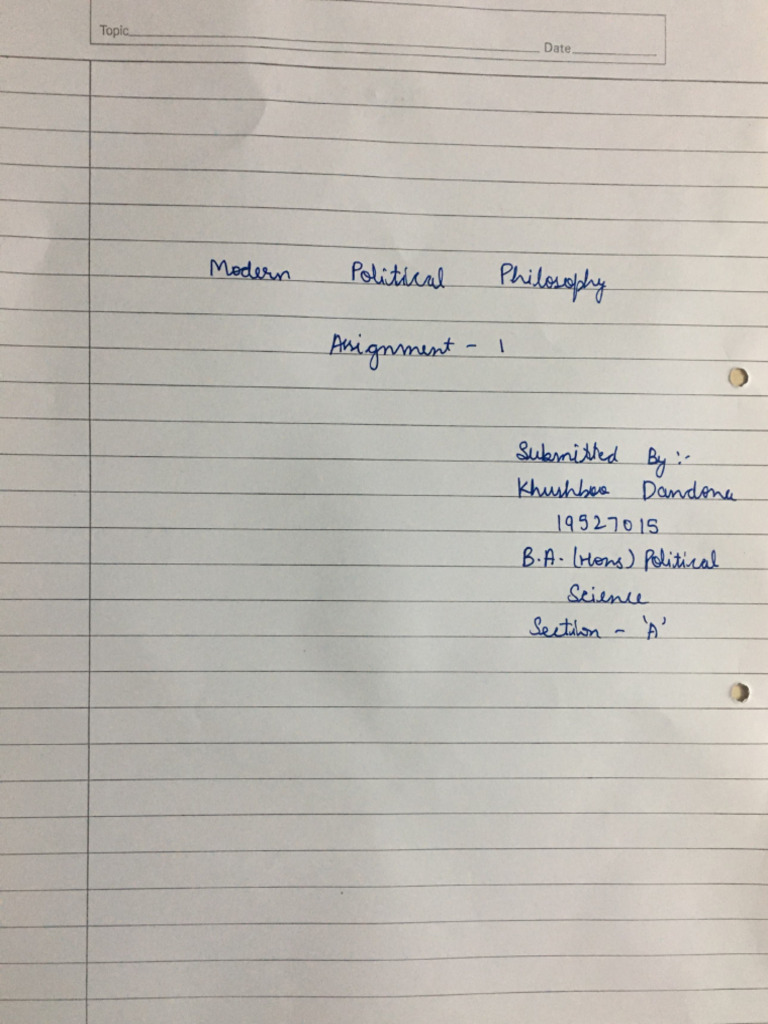 Topic
Date
Modern Political Philosophy
Assignment - 1
Submitted By :-
Khushboo Dandona
19527015
B.A. (Hons) Political
Science
Section - 'A'